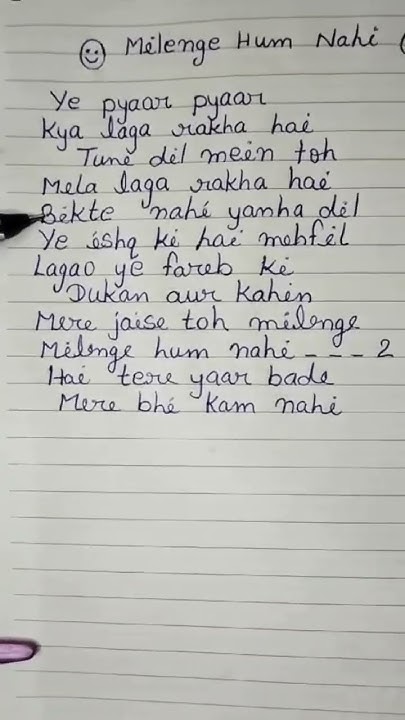 Milenge Hum Nahi (
Ye pyaar pyaar
Kya laga rakha hai
Tune dil mein toh
Mela laga rakha hai
Bikte nahi yanha dil
Ye ishq ki hai mehfil
Lagao ye fareb ki
Dukan aur Kahin
Mere jaise toh milenge
Milnge hum nahi - - - 2
Hai tere yaar bade
Mere bhi Kam nahi